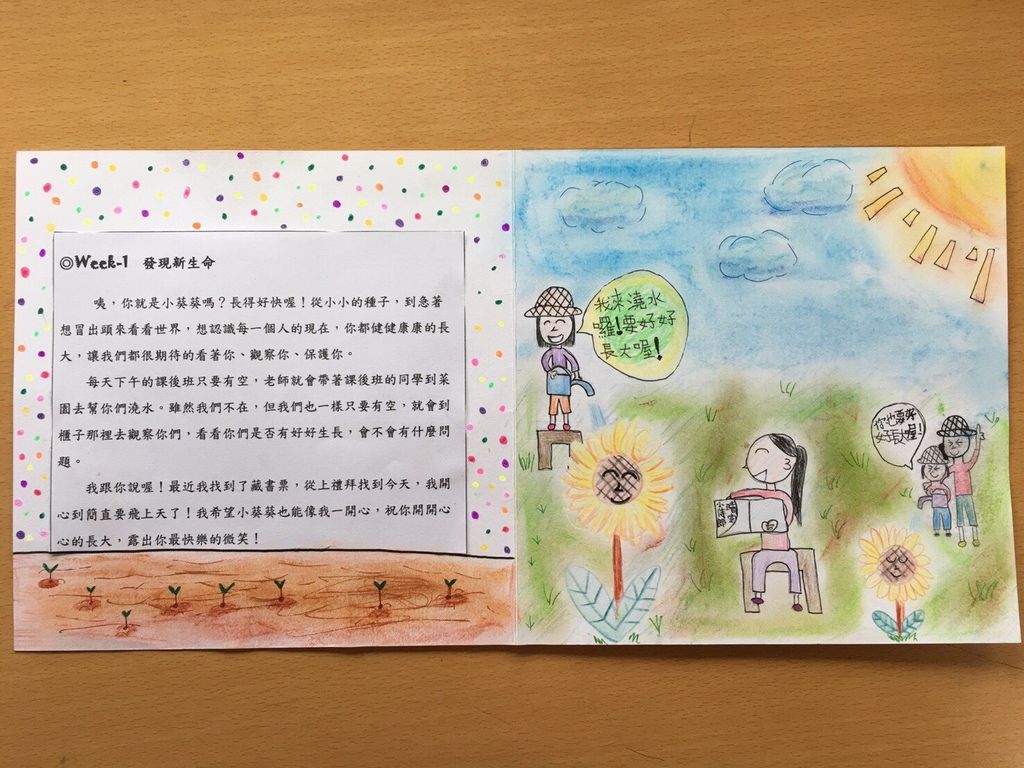 ◎Week-1 發現新生命
咦，你就是小葵葵嗎？長得好快喔！從小小的種子，到急著
想冒出頭來看看世界，想認識每一個人的現在，你都健健康康的長
大，讓我們都很期待的看著你、觀察你、保護你。
每天下午的課後班只要有空，老師就會帶著課後班的同學到菜
園去幫你們澆水。雖然我們不在，但我們也一樣只要有空，就會到
櫃子那裡去觀察你們，看看你們是否有好好生長，會不會有什麼問
題。
我跟你說喔！最近我找到了藏書票，從上禮拜找到今天，我開
心到簡直要飛上天了！我希望小葵葵也能像我一開心，祝你開開心
心的長大，露出你最快樂的微笑！
我來澆水
囉！要好好
長大喔！
你也要好
好長喔！